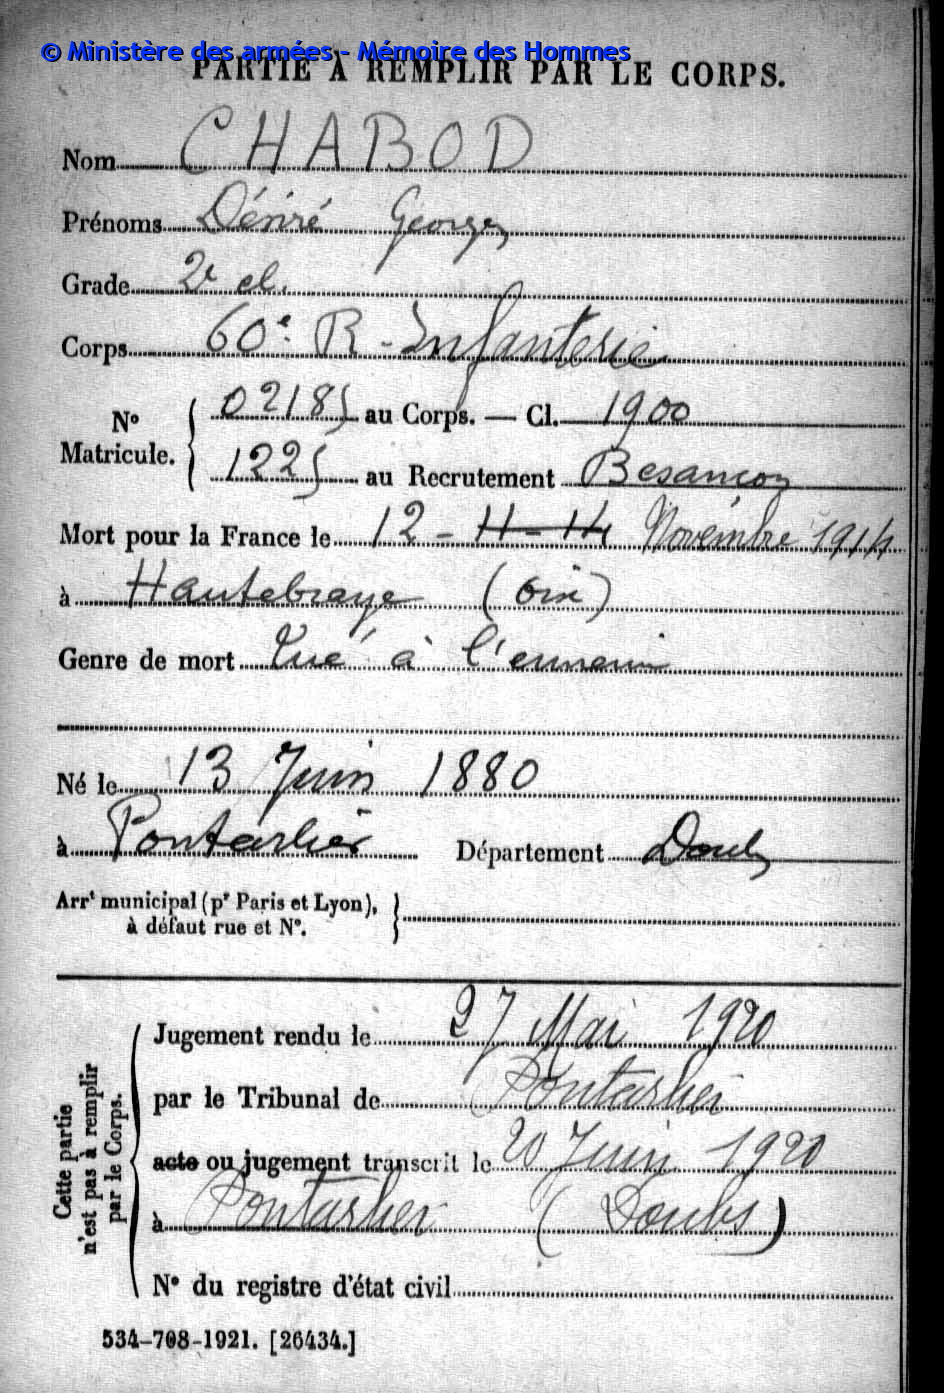 © Ministère des armées - Mémoire des Hommes
PARTIE À REMPLIR PAR LE CORPS.
Nom CHABOD
Prénoms Désiré Georges
Grade 2e cl.
Corps 60e R. Infanterie
No Matricule. 02185 au Corps. — Cl. 1900
1225 au Recrutement Besançon
Mort pour la France le 12 - 11 - 14 Novembre 1914
à Hautebraye (Oise)
Genre de mort Tué à l'ennemi
Né le 13 Juin 1880
à Pontarlier Département Doubs
Arrt municipal (pr Paris et Lyon),
à défaut rue et No.
Cette partie
n'est pas à remplir
par le Corps.
Jugement rendu le 27 Mai 1920
par le Tribunal de Pontarlier
acte ou jugement transcrit le 20 Juin 1920
à Pontarlier (Doubs)
No du registre d'état civil
534-708-1921. [26434.]